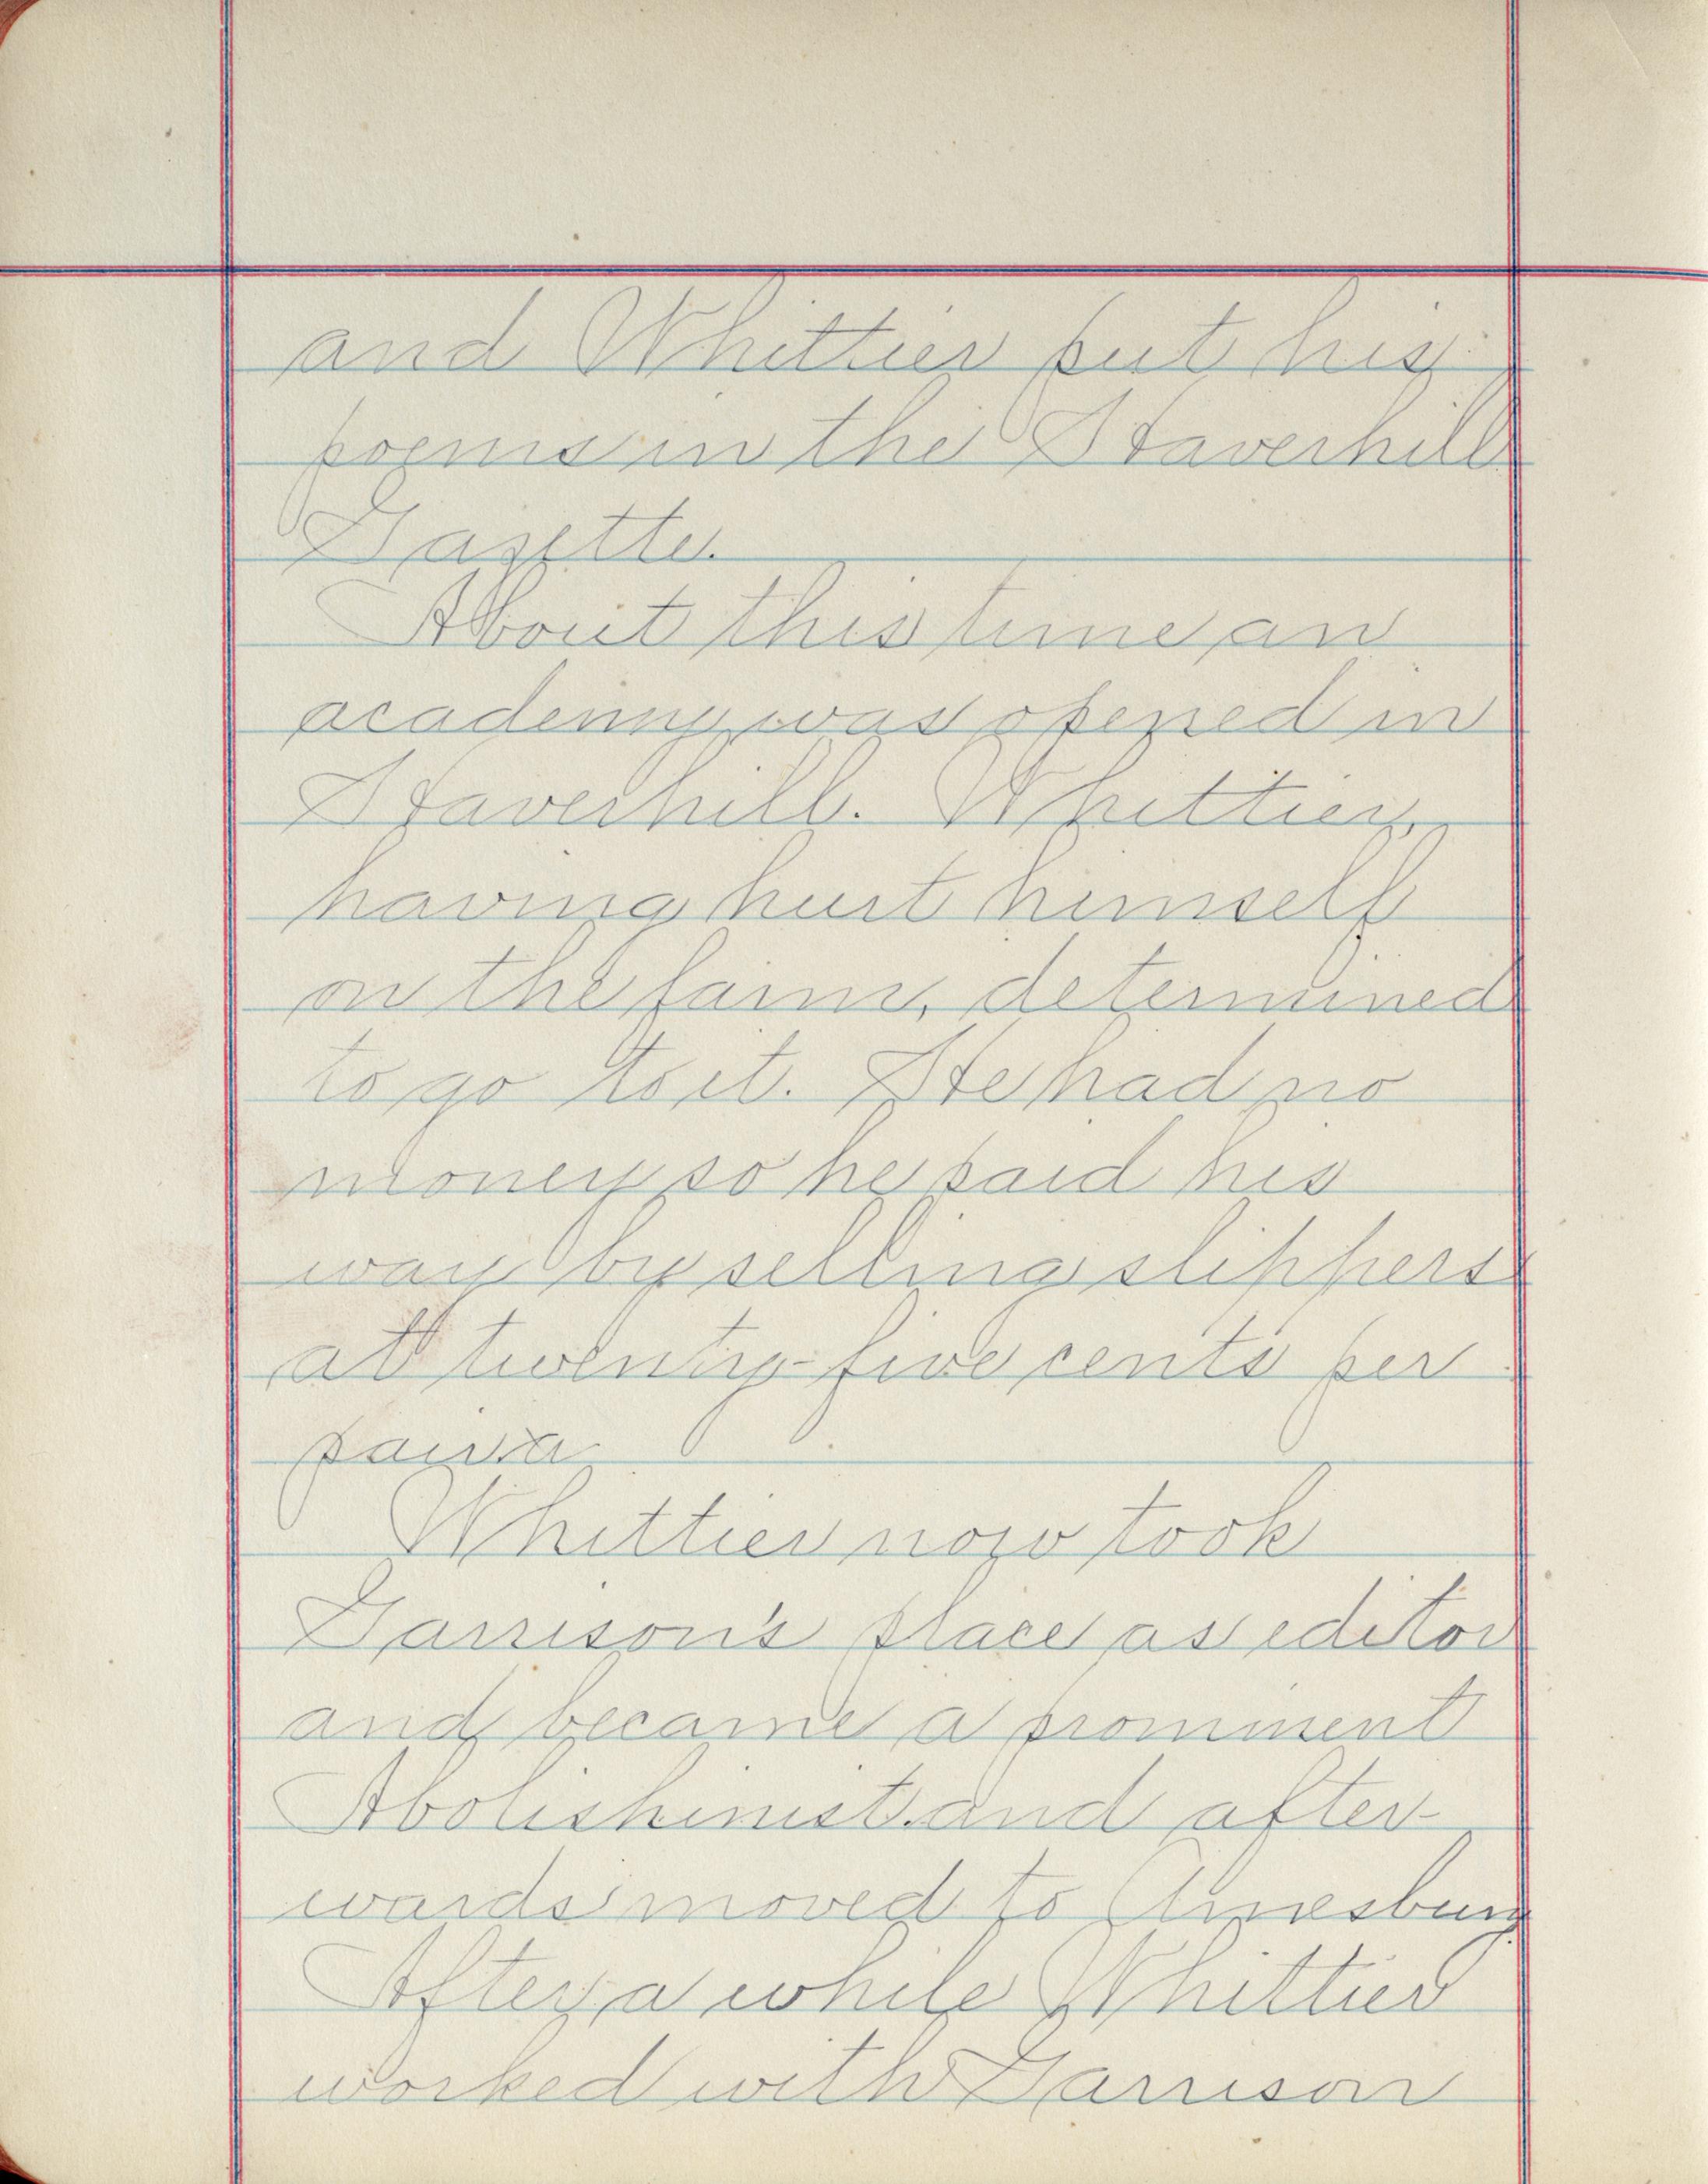 and Whittier put his
poems in the Haverhill
Gazette.
About this time an
academy was opened in
Haverhill. Whittier,
having hurt himself
on the farm, determined
to go to it. He had no
money so he paid his
way by selling slippers
at twenty-five cents per
pair.
Whittier now took
Garrison's place as editor
and became a prominent
Abolishinist and after-
wards moved to Amesbury.
After a while Whittier
worked with Garrison